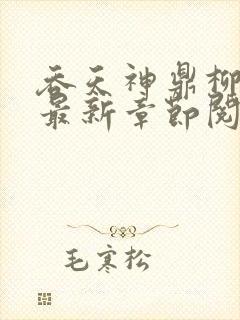 吞天神鼎柳
最新章节阅
毛寒松